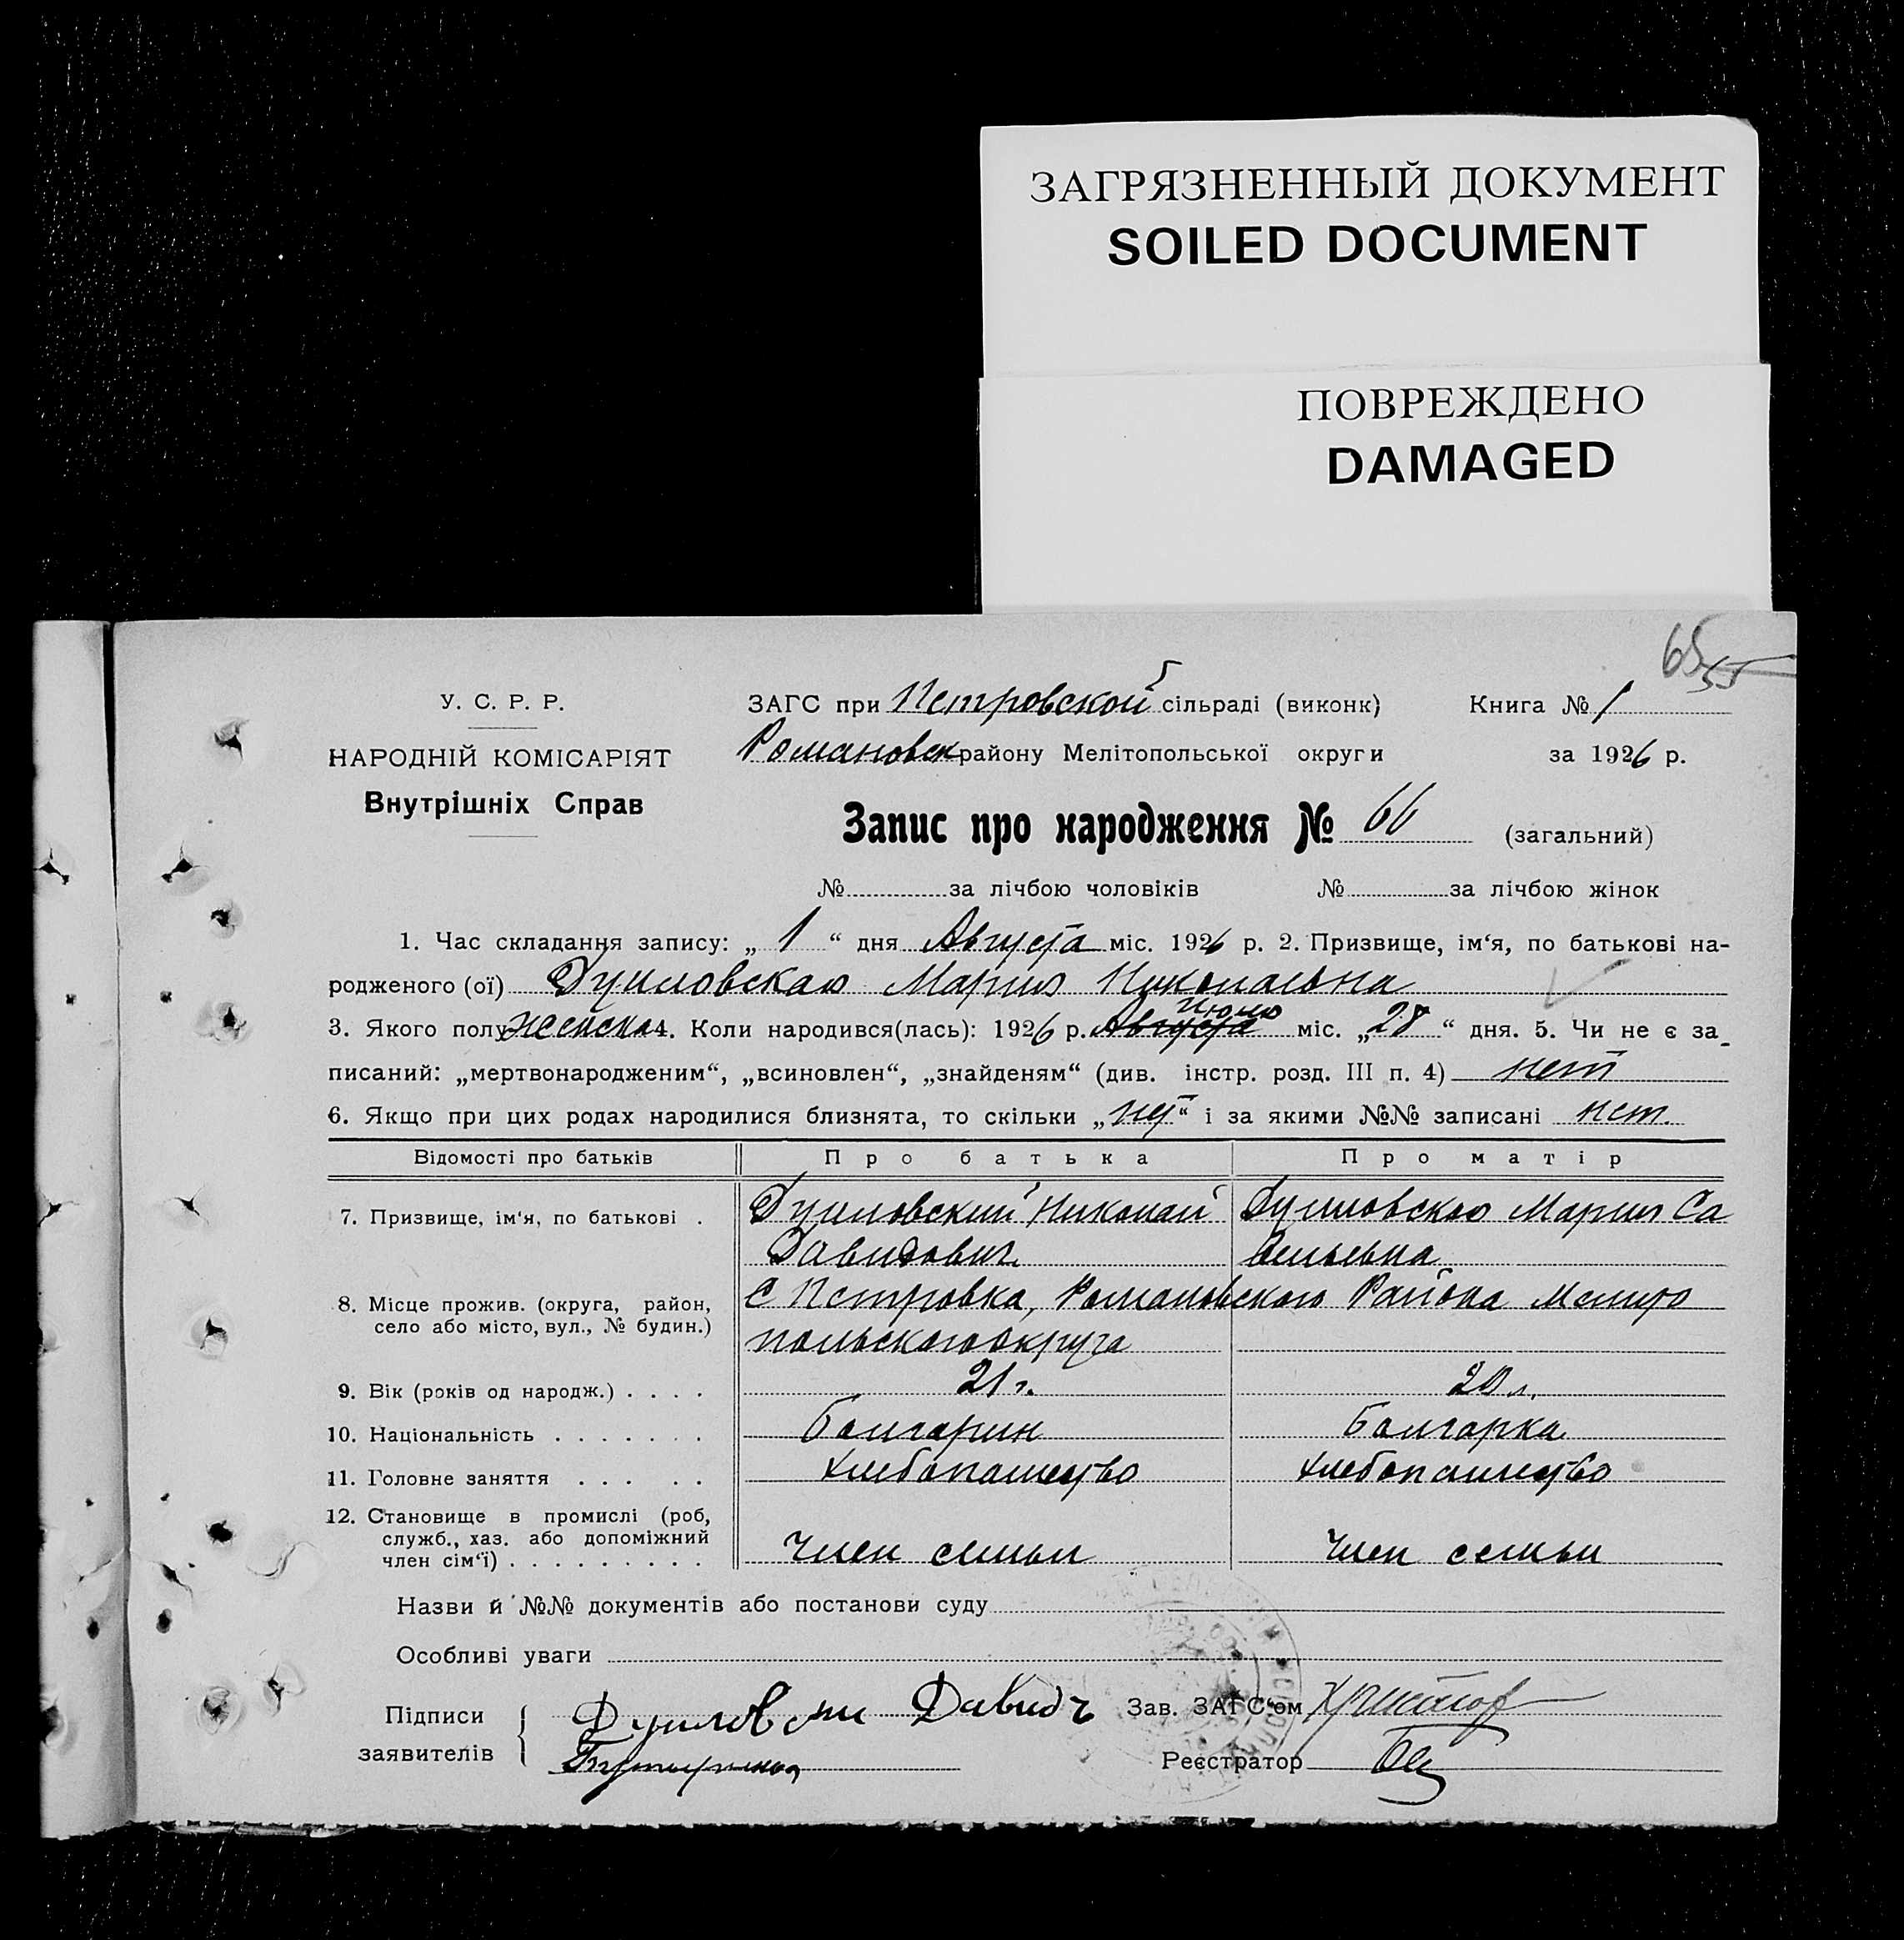 ЗАГРЯЗНЕННЫЙ ДОКУМЕНТ
SOILED DOCUMENT
ПОВРЕЖДЕНО
DAMAGED
65
У. С. Р. Р.
НАРОДНІЙ КОМІСАРІЯТ
Внутрішніх Справ
ЗАГС при Петровской сільраді (виконк)
Книга № 1
Романовск району Мелітопольської округи
за 1926 р.
Запис про народження № 66 (загальний)
№ за лічбою чоловіків № за лічбою жінок
1. Час складання запису: „ 1 “ дня Августа міс. 1926 р. 2. Призвище, ім‘я, по батькові на-
родженого (ої) Мария Николаевна
3. Якого полу женска 4. Коли народився(лась): 1926 р. Августа Июля міс. „ 28 “ дня. 5. Чи не є за-
писаний: „мертвонародженим“, „всиновлен“, „знайденям“ (див. інстр. розд. III п. 4) нет
6. Якщо при цих родах народилися близнята, то скільки „нет“ і за якими №№ записані нет.
Відомості про батьків Про батька Про матір
7. Призвище, ім‘я, по батькові . Николай Мария Са
Давидович вельевна
8. Місце прожив. (округа, район, село або місто, вул., № будин.) С Петровка, Романовского Района Мелито
польского округа
9. Вік (років од народж.) . . . . 21 г. 20 л.
10. Національність . . . . . . . Болгарин Болгарка
11. Головне заняття . . . . . Хлебопашество Хлебопашество
12. Становище в промислі (роб,
служб., хаз. або допоміжний
член сім‘ї) . . . . . . . . . Член семьи Член семьи
Назви й №№ документів або постанови суду
Особливі уваги
Підписи
заявителів
Давидъ
Зав. ЗАГС‘ом
Реєстратор